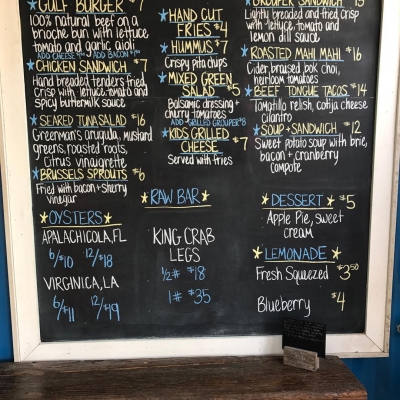 GULF BURGER $7
100% natural beef on a
brioche bun with lettuce
tomato and garlic aioli
CHICKEN SANDWICH $7
Hand breaded tenders fried
crisp with lettuce, tomato and
spicy buttermilk sauce
SEARED TUNA SALAD $16
Greenman's arugula, mustard
greens, roasted roots,
Citrus vinaigrette
BRUSSELS SPROUTS $6
Fried with bacon + sherry
vinegar
OYSTERS
APALACHICOLA, FL
6/$10 12/$18
VIRGINICA, LA
6/$11 12/$19
HAND CUT
FRIES $4
HUMMUS $7
Crispy pita chips
MIXED GREEN
SALAD $5
Balsamic dressing +
cherry tomatoes
ADD GRILLED GROUPER $8
KIDS GRILLED
CHEESE $7
Served with fries
RAW BAR
KING CRAB
LEGS
1/2# $18
1# $35
GROUPER SANDWICH
Lightly breaded and fried crisp
with lettuce, tomato and
lemon dill sauce
ROASTED MAHI MAHI $16
Cider braised bok choi,
heirloom tomatoes
BEEF TONGUE TACOS $14
Tomatillo relish, cotija cheese
cilantro
SOUP + SANDWICH $12
Sweet potato soup with brie,
bacon + cranberry
compote
DESSERT $5
Apple Pie, sweet
cream
LEMONADE
Fresh Squeezed $3.50
Blueberry $4